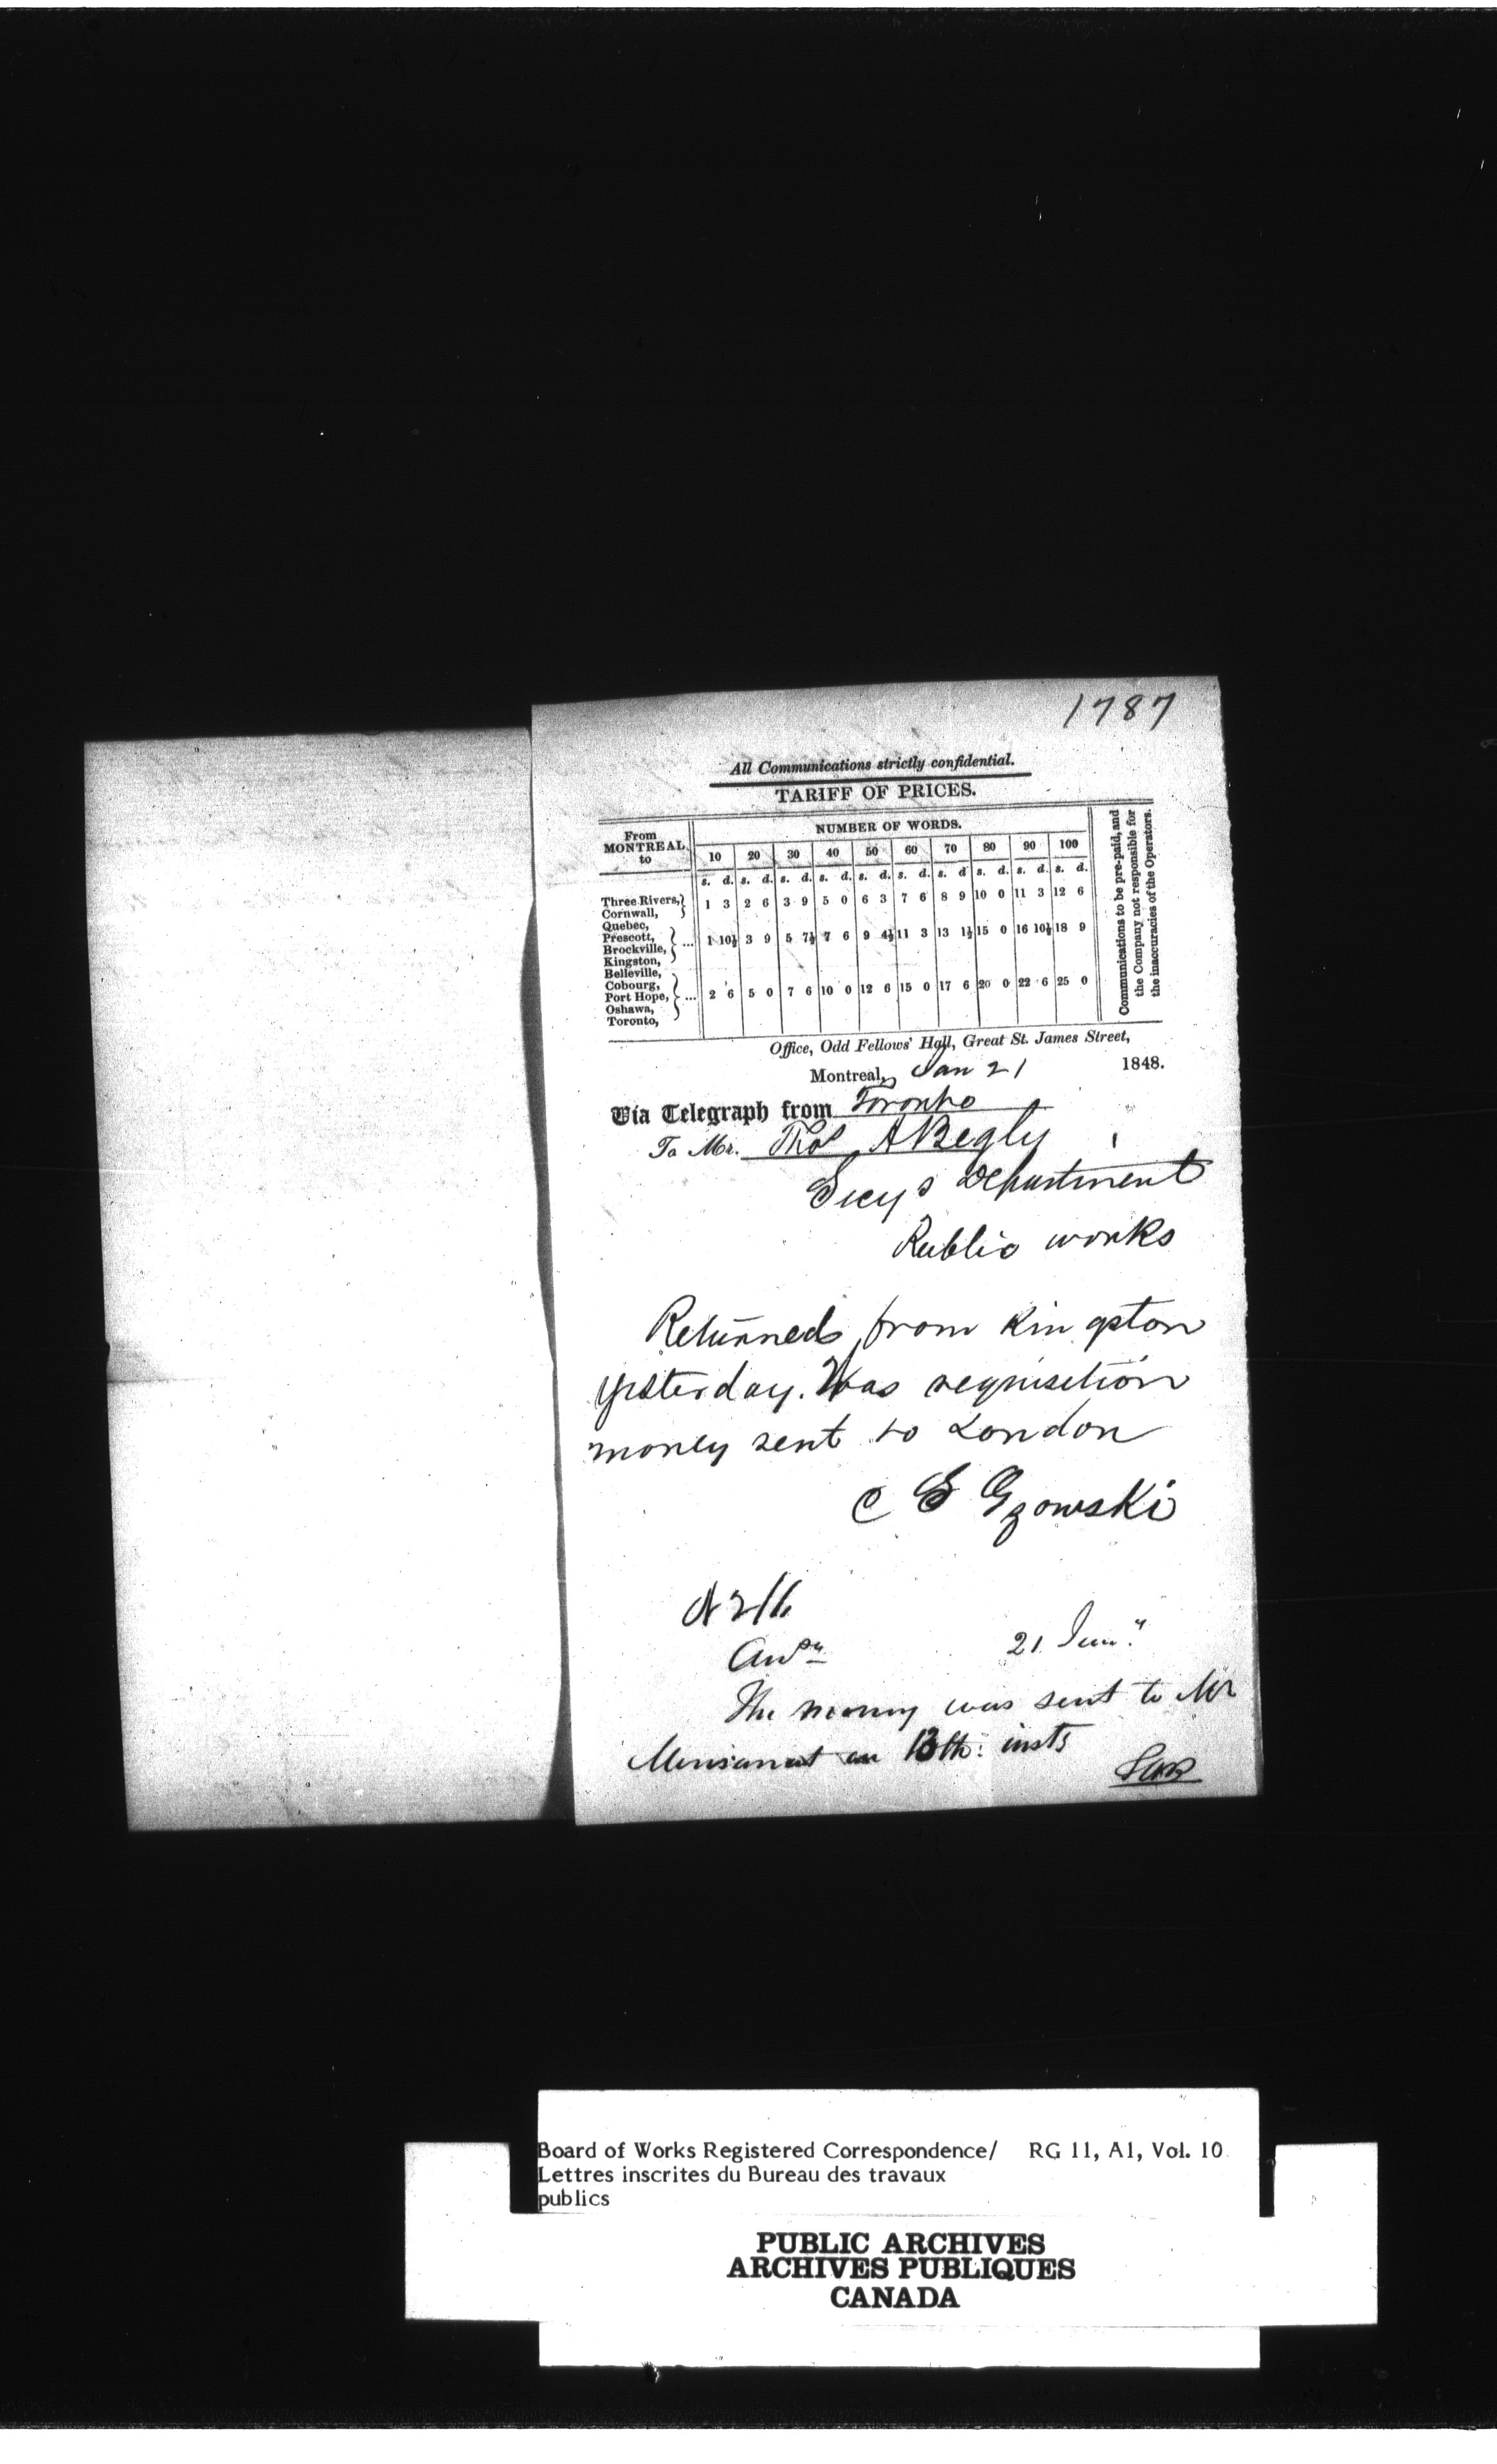 1787
All Communications strictly confidential.
TARIFF OF PRICES.
From MONTREAL to
NUMBER OF WORDS.
10 20 30 40 50 60 70 80 90 100
s. d. s. d. s. d. s. d. s. d. s. d. s. d s. d. s. d. s. d.
Three Rivers, Cornwall, } 1 3 2 6 3 9 5 0 6 3 7 6 8 9 10 0 11 3 12 6
Quebec, Prescott, Brockville, Kingston, } ... 1 10½ 3 9 5 7½ 7 6 9 4½ 11 3 13 1½ 15 0 16 10½ 18 9
Belleville, Cobourg, Port Hope, Oshawa, Toronto, } ... 2 6 5 0 7 6 10 0 12 6 15 0 17 6 20 0 22 6 25 0
Communications to be pre-paid, and
the Company not responsible for
the inaccuracies of the Operators.
Office, Odd Fellows' Hall, Great St. James Street,
Montreal, Jan 21 1848.
Via Telegraph from Toronto
To Mr. Thos A Begly
Secys Department
Public works
Returned from Kingston
yesterday. Was requisition
money sent to London
C S Gzowski
21
The money was sent to Mr
on 13th: inst
Board of Works Registered Correspondence/ RG 11, A1, Vol. 10
Lettres inscrites du Bureau des travaux
publics
PUBLIC ARCHIVES
ARCHIVES PUBLIQUES
CANADA